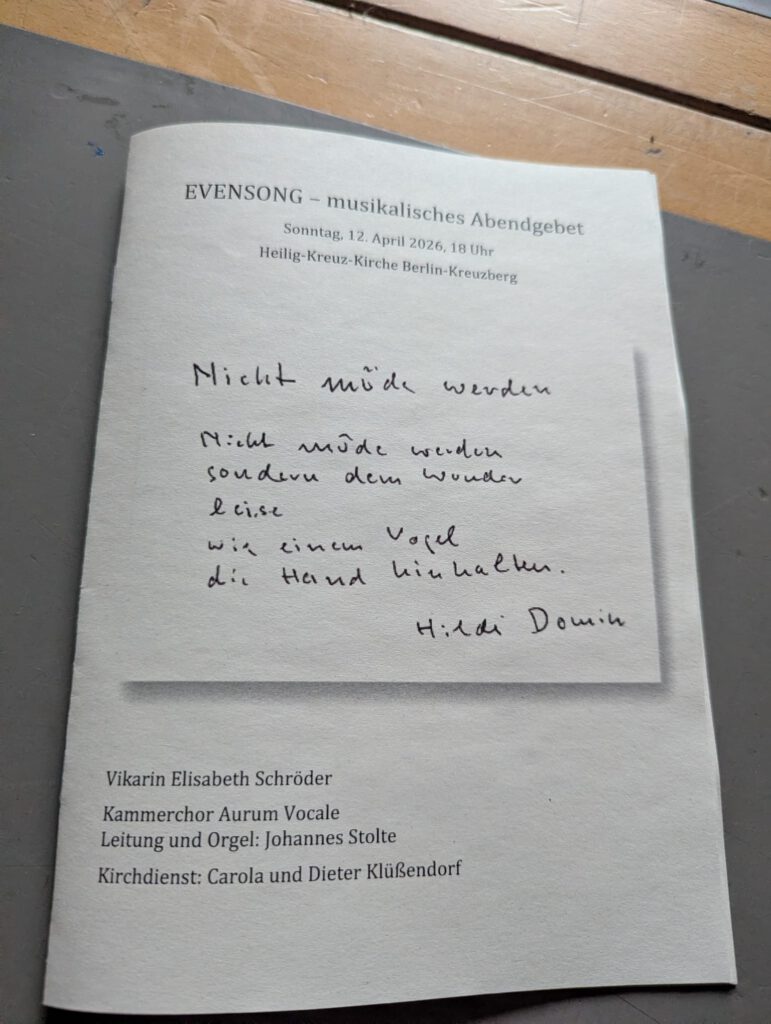 EVENSONG – musikalisches Abendgebet
Sonntag, 12. April 2026, 18 Uhr
Heilig-Kreuz-Kirche Berlin-Kreuzberg
Nicht müde werden
Nicht müde werden
sondern dem Wunder
leise
wie einem Vogel
die Hand hinhalten.
Hilde Domin
Vikarin Elisabeth Schröder
Kammerchor Aurum Vocale
Leitung und Orgel: Johannes Stolte
Kirchdienst: Carola und Dieter Klüßendorf